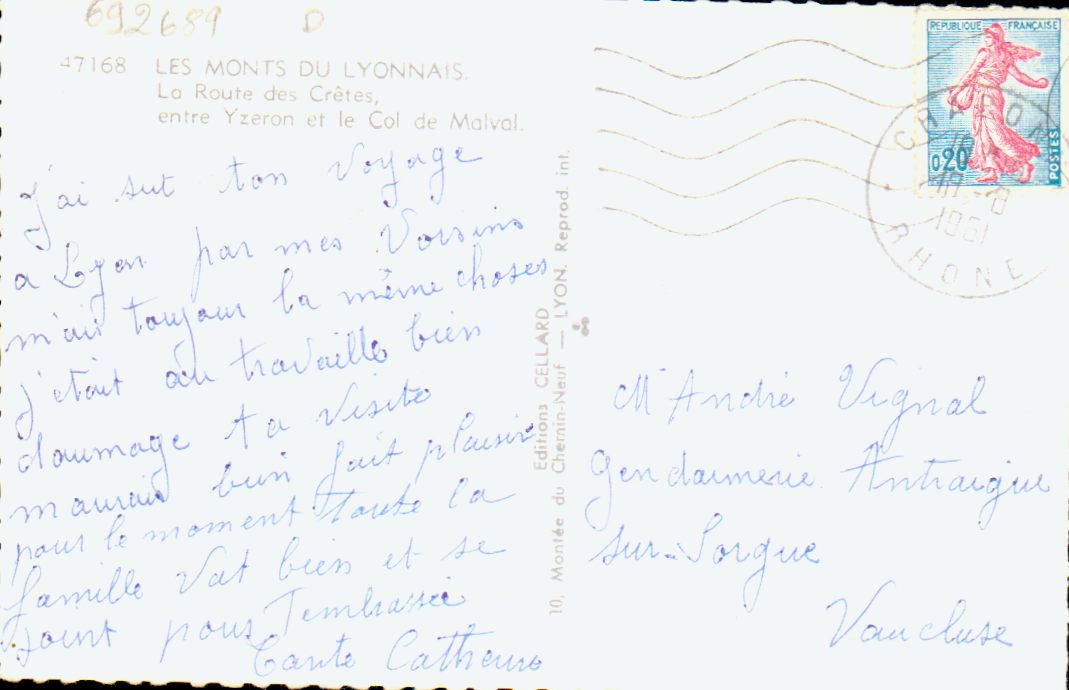 692689 D
47168 LES MONTS DU LYONNAIS.
La Route des Crêtes,
entre Yzeron et le Col de Malval.
j'ai sut ton voyage
a Lyon par mes Voisins
m'ais toujour la même choses
j'etait au travaille bien
daumage ta visite
maurais bien fait plaisir
pour le moment toute la
famille vat bien et se
joint pour
Tante
Editions CELLARD
10, Montée du Chemin-Neuf — LYON. Reprod. int.
REPUBLIQUE FRANÇAISE
0,20
POSTES
CHAPON
18
1961
RHONE
Mr André Vignal
Gendarmerie Antraigue
sur-Sorgue
Vaucluse